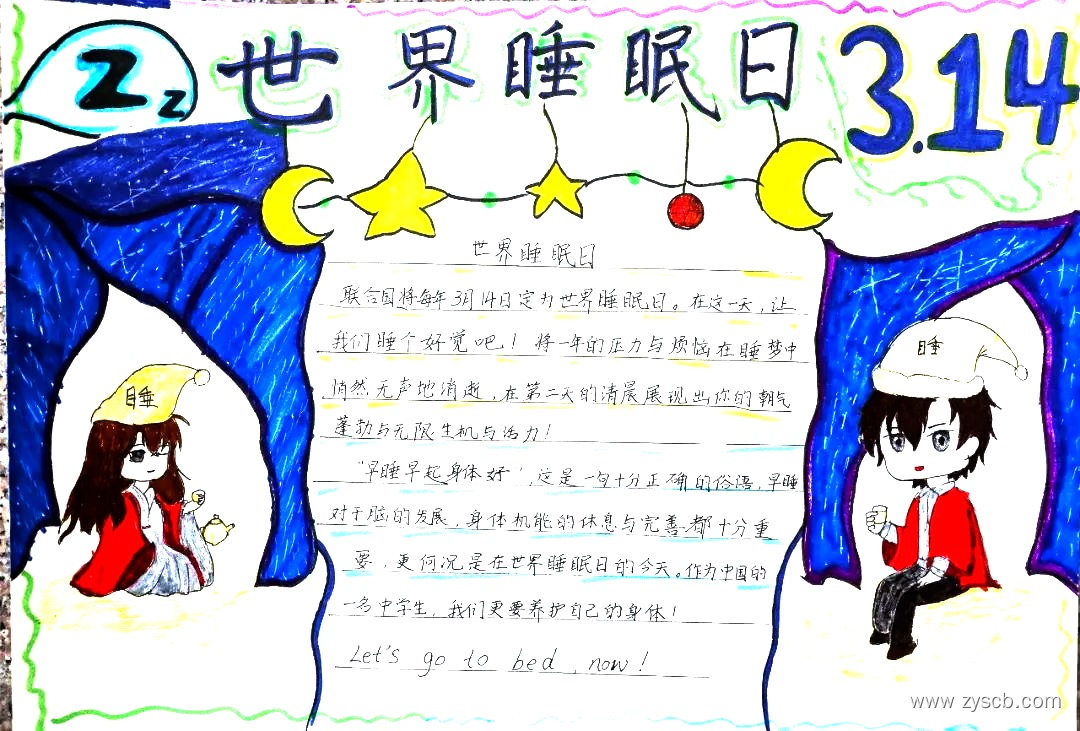 Z z
世界睡眠日
3.14
世界睡眠日
联合国将每年3月14日定为世界睡眠日。在这一天，让
我们睡个好觉吧！将一年的压力与烦恼在睡梦中
悄然无声地消逝，在第二天的清晨展现出你的朝气
蓬勃与无限生机与活力！
"早睡早起身体好"，这是一句十分正确的俗语，早睡
对于脑的发展，身体机能的休息与完善都十分重
要，更何况是在世界睡眠日的今天。作为中国的
一名中学生，我们更要养护自己的身体！
Let's go to bed, now!
睡
睡
www.zyscb.com